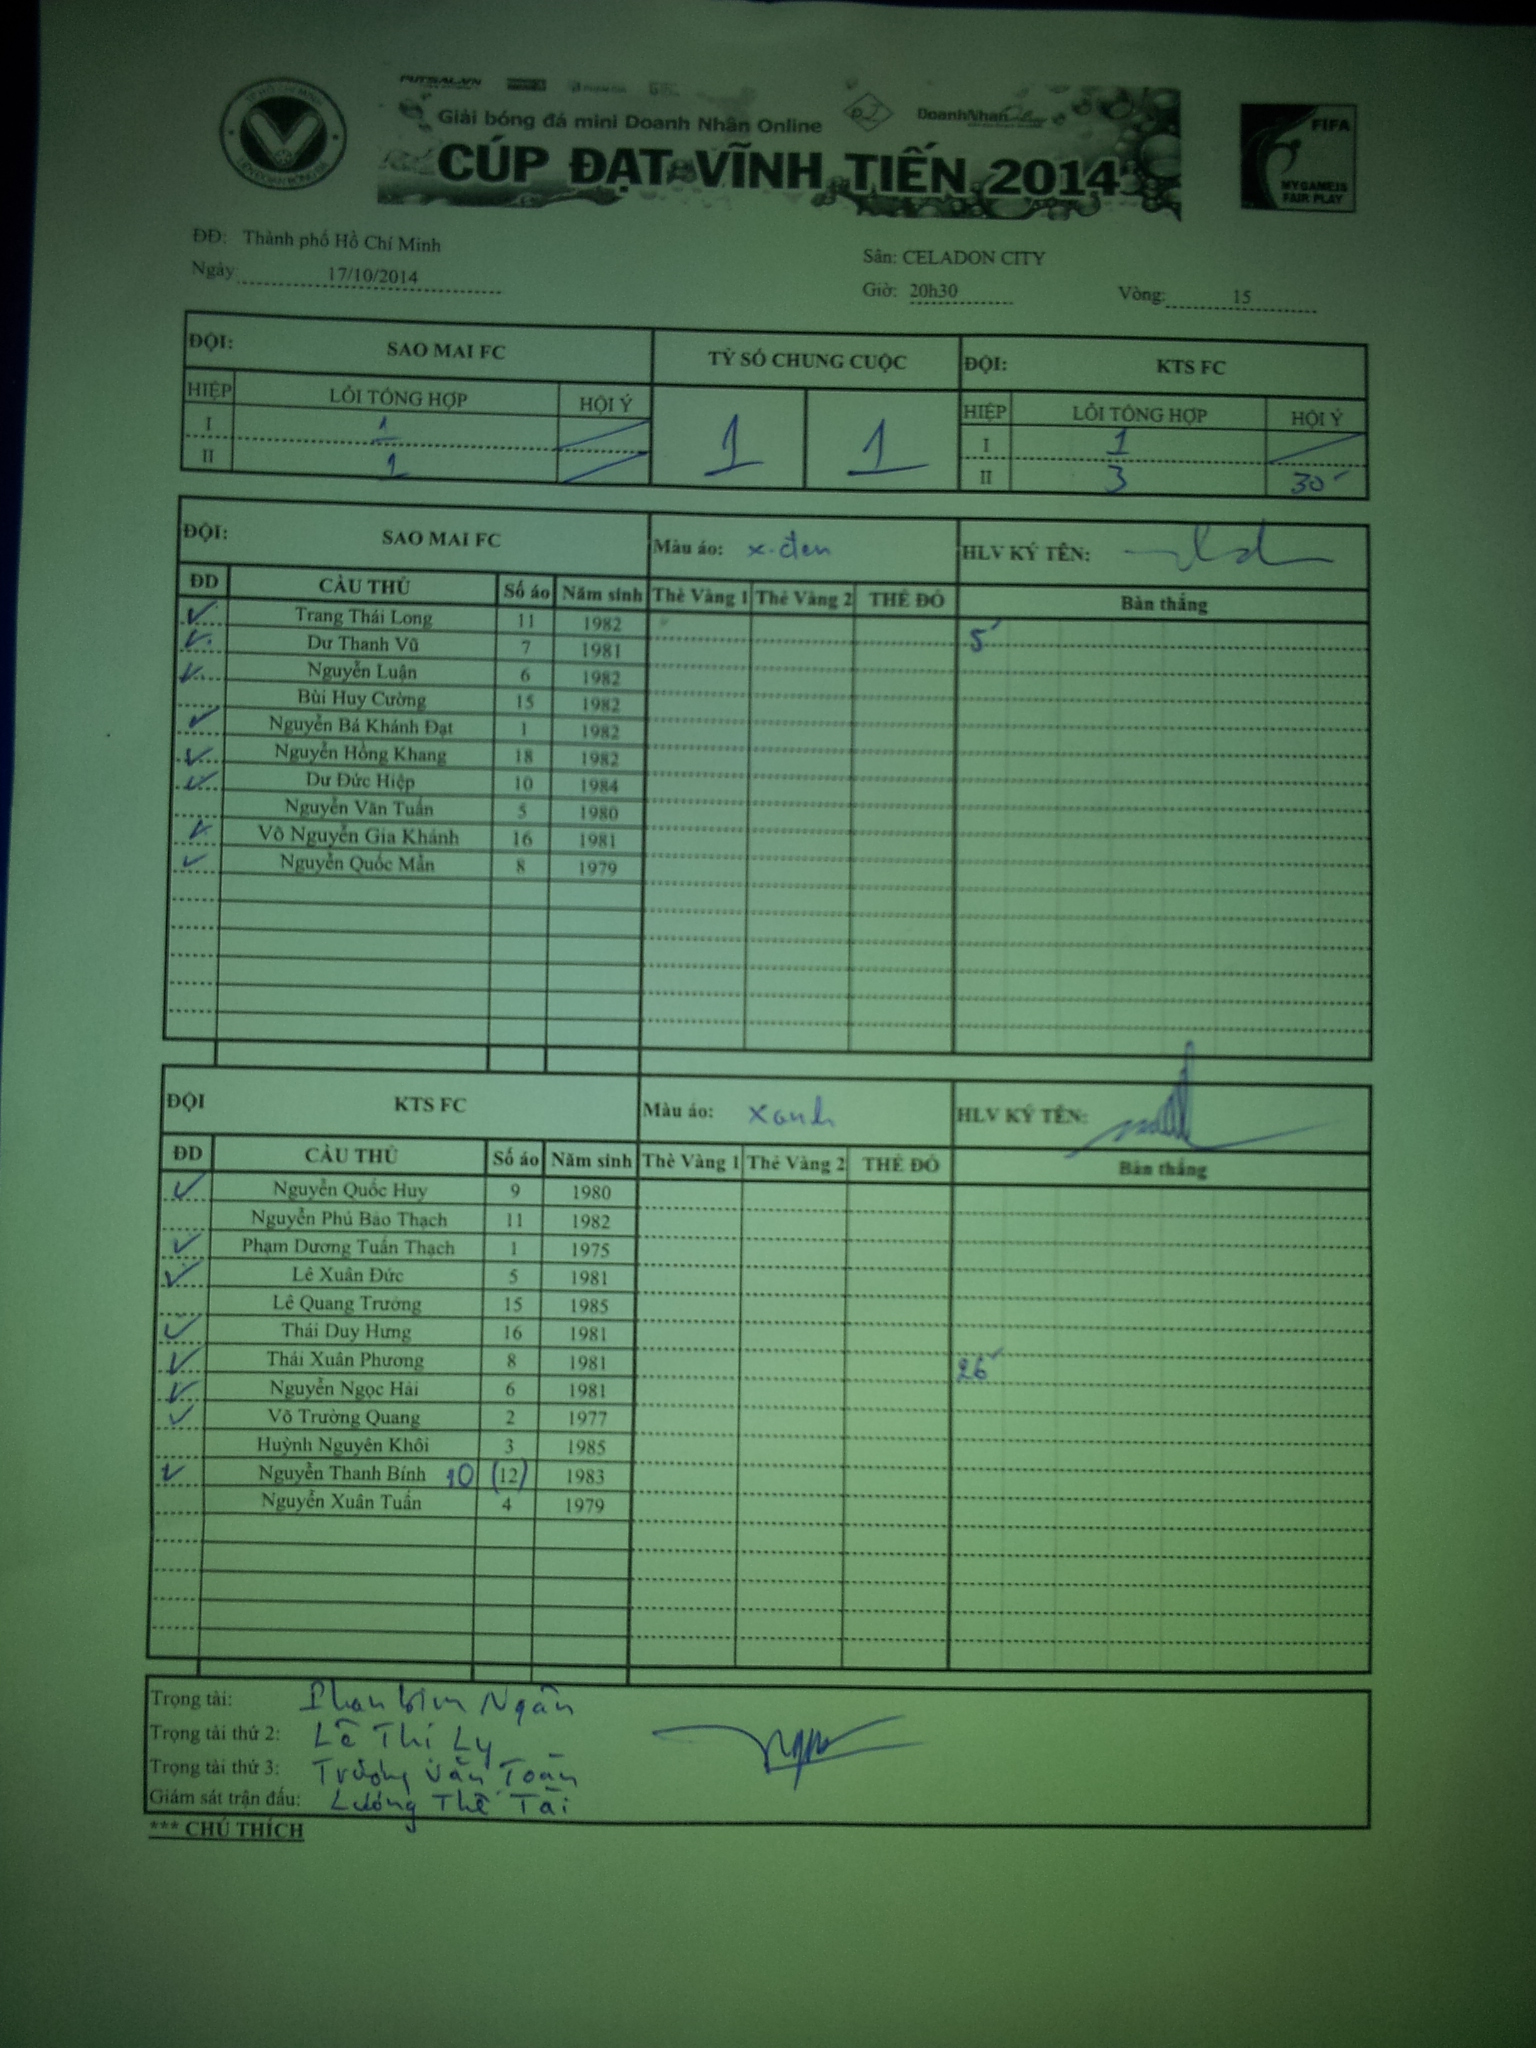 TP HỒ CHÍ MINH
LIÊN ĐOÀN BÓNG ĐÁ
FUTSAL.VN
Giải bóng đá mini Doanh Nhân Online
DoanhNhan
CÚP ĐẠT VĨNH TIẾN 2014
FIFA
MY GAME IS
FAIR PLAY
ĐĐ: Thành phố Hồ Chí Minh
Sân: CELADON CITY
Ngày 17/10/2014
Giờ: 20h30 Vòng: 15
ĐỘI: SAO MAI FC TỶ SỐ CHUNG CUỘC ĐỘI: KTS FC
HIỆP LỖI TỔNG HỢP HỘI Ý 1 1 HIỆP LỖI TỔNG HỢP HỘI Ý
I 1 I 1
II 1 II 3 30'
ĐỘI: SAO MAI FC Màu áo: x-đen HLV KÝ TÊN:
ĐD CẦU THỦ Số áo Năm sinh Thẻ Vàng 1 Thẻ Vàng 2 THẺ ĐỎ Bàn thắng
✓ Trang Thái Long 11 1982 5'
✓ Dư Thanh Vũ 7 1981
✓ Nguyễn Luận 6 1982
Bùi Huy Cường 15 1982
✓ Nguyễn Bá Khánh Đạt 1 1982
✓ Nguyễn Hồng Khang 18 1982
✓ Dư Đức Hiệp 10 1984
Nguyễn Văn Tuấn 5 1980
✓ Võ Nguyễn Gia Khánh 16 1981
✓ Nguyễn Quốc Mẫn 8 1979
ĐỘI KTS FC Màu áo: xanh HLV KÝ TÊN:
ĐD CẦU THỦ Số áo Năm sinh Thẻ Vàng 1 Thẻ Vàng 2 THẺ ĐỎ Bàn thắng
✓ Nguyễn Quốc Huy 9 1980
Nguyễn Phú Bảo Thạch 11 1982
✓ Phạm Dương Tuấn Thạch 1 1975
✓ Lê Xuân Đức 5 1981
Lê Quang Trưởng 15 1985
✓ Thái Duy Hưng 16 1981
✓ Thái Xuân Phương 8 1981 26'
✓ Nguyễn Ngọc Hải 6 1981
✓ Võ Trường Quang 2 1977
Huỳnh Nguyên Khôi 3 1985
✓ Nguyễn Thanh Bính 10 (12) 1983
Nguyễn Xuân Tuấn 4 1979
Trọng tài: Phan Ngân
Trọng tài thứ 2: Lê Thị Ly
Trọng tài thứ 3: Trương Văn Toàn
Giám sát trận đấu: Lương Thế Tài
*** CHÚ THÍCH